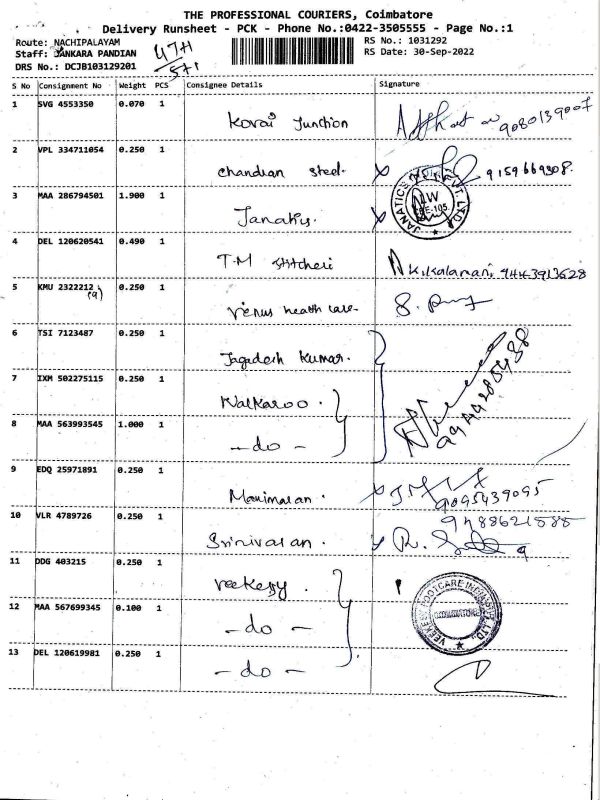 THE PROFESSIONAL COURIERS, Coimbatore
Delivery Runsheet - PCK - Phone No.:0422-3505555 - Page No.:1
Route: NACHIPALAYAM
Staff: SANKARA PANDIAN
DRS No.: DCJB103129201
RS No.: 1031292
RS Date: 30-Sep-2022
S No Consignment No Weight PCS Consignee Details Signature
1 SVG 4553350 0.070 1 Kovai Junction 9080139007
2 VPL 334711054 0.250 1 chandian steel. 9159669308.
3 MAA 286794501 1.900 1 Janatis. JANATICS
4 DEL 120620541 0.490 1 T.M K.Kalamani, 9443913628
5 KMU 2322212 (9) 0.250 1 Venus health care.
6 TSI 7123487 0.250 1 Jagadesh Kumar.
7 IXM 502275115 0.250 1 Walkaroo.
8 MAA 563993545 1.000 1 - do -
9 EDQ 25971891 0.250 1 Manimaran. 9095439095
10 VLR 4789726 0.250 1 Srinivasan.
11 DDG 403215 0.250 1 veekesy.
12 MAA 567699345 0.100 1 - do -
13 DEL 120619981 0.250 1 - do -